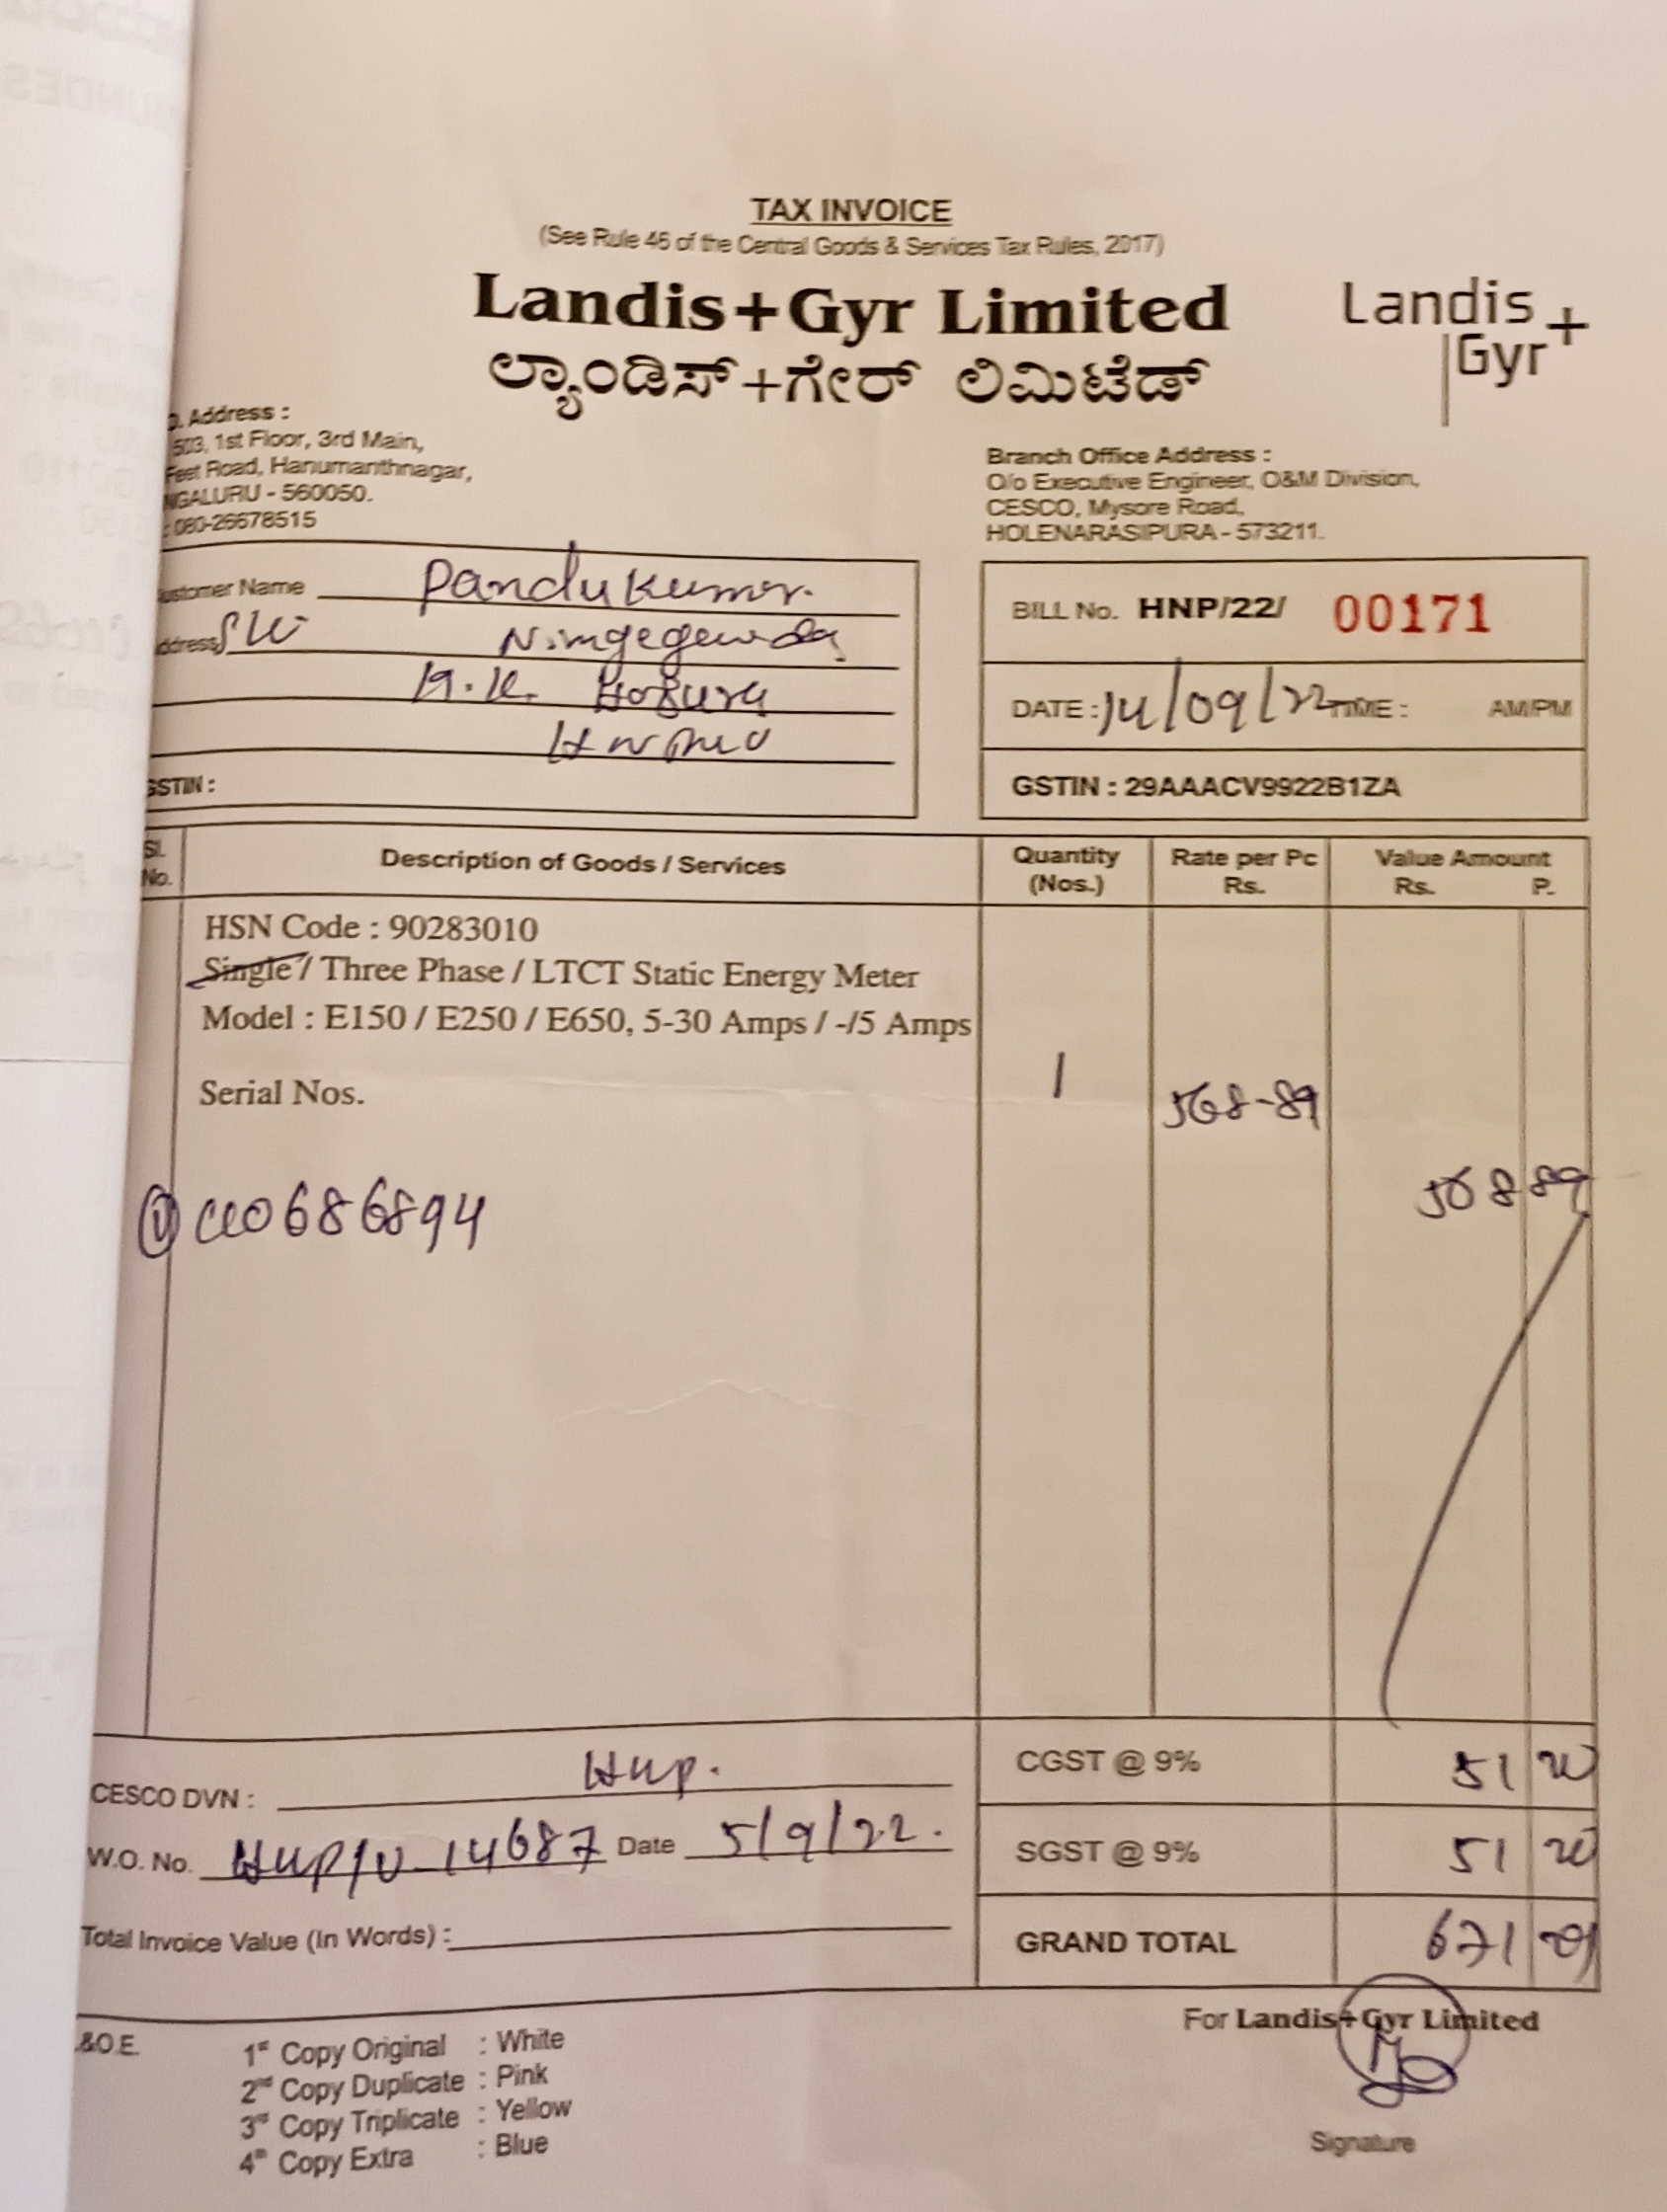 TAX INVOICE
(See Rule 46 of the Central Goods & Services Tax Rules, 2017)
Landis+Gyr Limited
ಲ್ಯಾಂಡಿಸ್+ಗೇರ್ ಲಿಮಿಟೆಡ್
Landis
Gyr+
Address :
503, 1st Floor, 3rd Main,
Feet Road, Hanumanthnagar,
NGALURU - 560050.
: 080-26678515
Branch Office Address :
O/o Executive Engineer, O&M Division,
CESCO, Mysore Road,
HOLENARASIPURA - 573211.
ustomer Name Pandukumar.
ddress
GSTIN :
BILL No. HNP/22/ 00171
DATE : 14/09/22 TIME : AM/PM
GSTIN : 29AAACV9922B1ZA
Sl. No. Description of Goods / Services Quantity (Nos.) Rate per Pc Rs. Value Amount Rs. P.
HSN Code : 90283010
Single / Three Phase / LTCT Static Energy Meter
Model : E150 / E250 / E650, 5-30 Amps / -/5 Amps
Serial Nos. 1 568-89
568 89
0686894
CGST @ 9% 51 20
SGST @ 9% 51 20
GRAND TOTAL 671 29
CESCO DVN : Hnp.
W.O. No. 14687 Date 5/9/22.
Total Invoice Value (In Words) :
&O.E.
1st Copy Original : White
2nd Copy Duplicate : Pink
3rd Copy Triplicate : Yellow
4th Copy Extra : Blue
For Landis+Gyr Limited
Signature